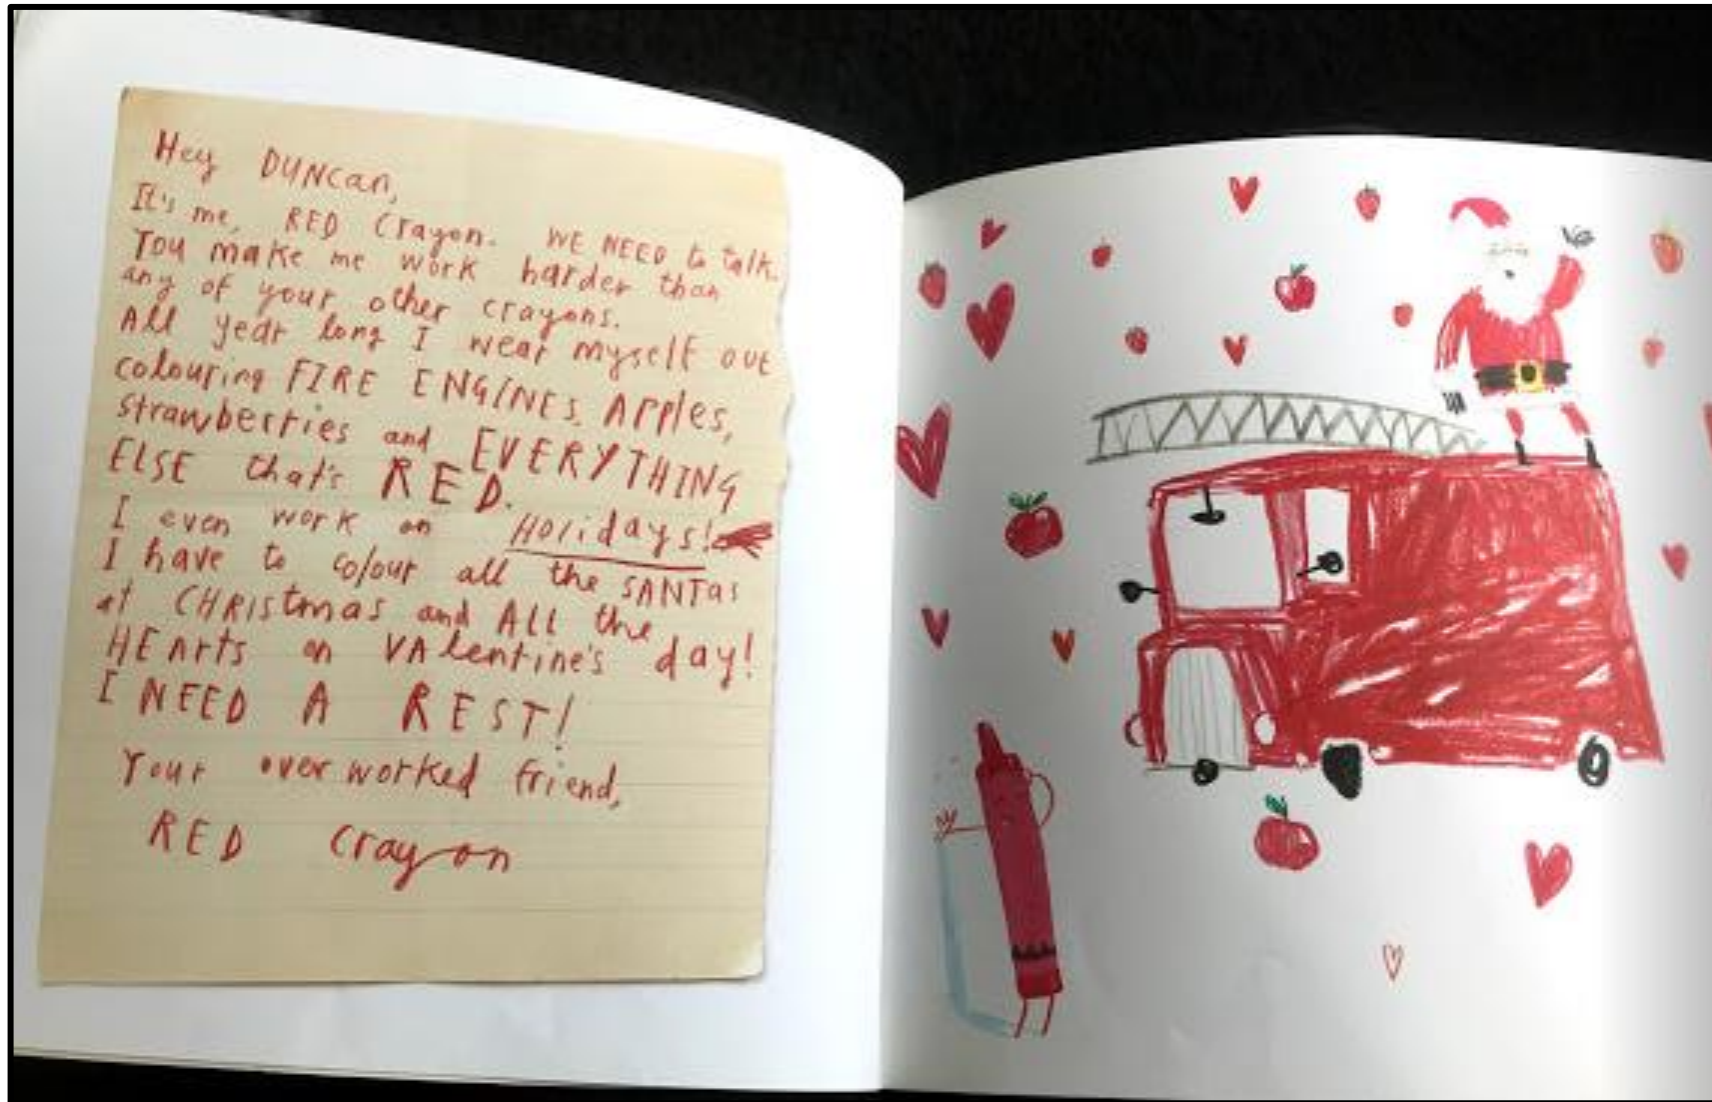 Hey DUNCan,
It's me, RED Crayon. WE NEED to talk.
You make me work harder than
any of your other crayons.
All year long I wear myself out
colouring FIRE ENGINES, Apples,
strawberries and EVERYTHING
ELSE that's RED.
I even work on Holidays!
I have to colour all the SANTas
at CHRIStmas and ALL the
HEArts on VAlentine's day!
I NEED A REST!
Your overworked friend,
RED Crayon